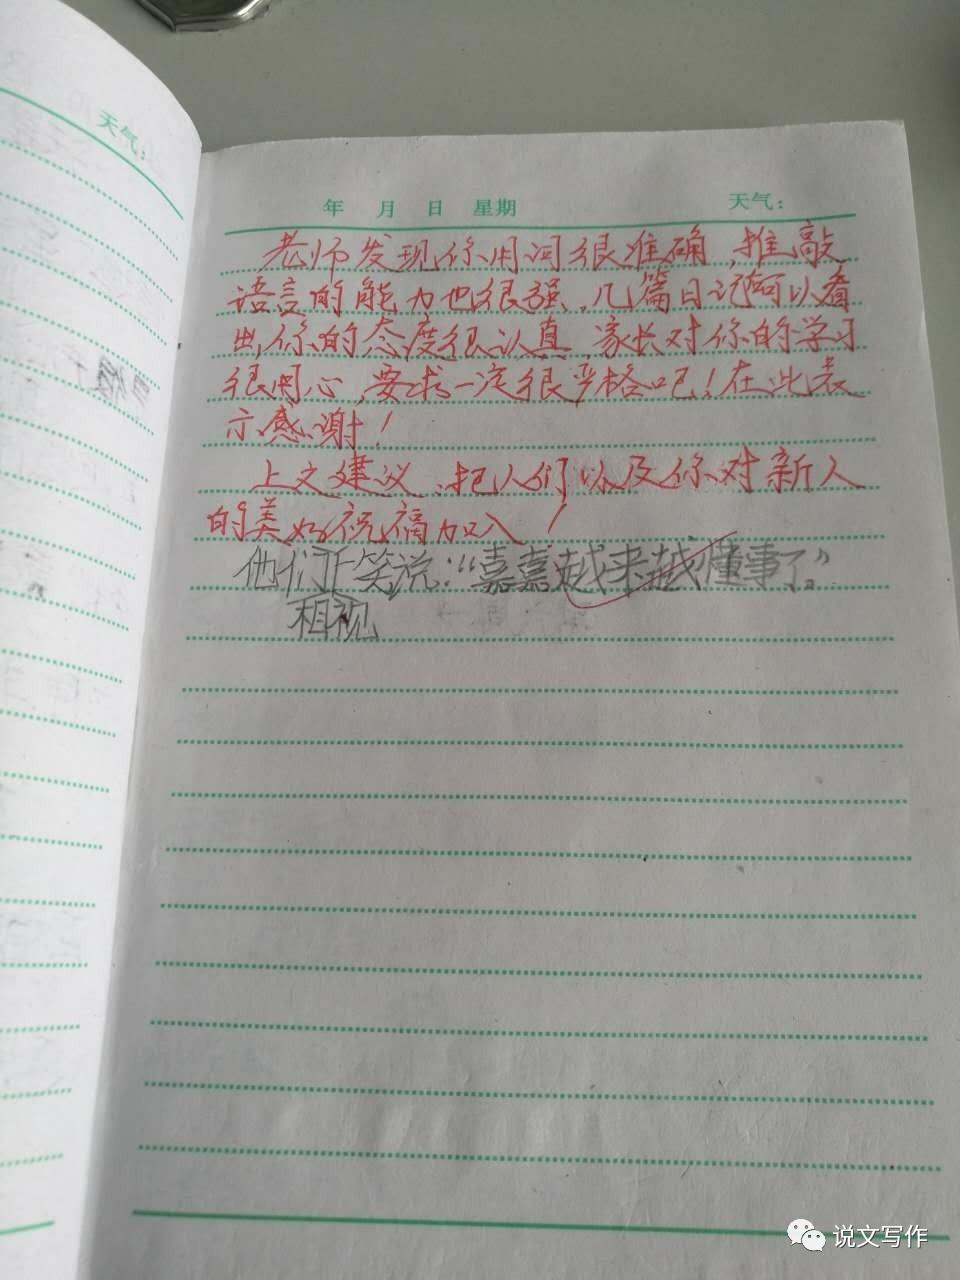 天气：
年 月 日 星期 天气：
老师发现你用词很准确，推敲
语言的能力也很强，几篇日记可以看
出，你的态度很认真，家长对你的学习
很用心，要求一定很严格吧！在此表
示感谢！
上文建议，把人们以及你对新人
的美好祝福加入！
他们笑说：“嘉嘉越来越懂事了。”
相视
说文写作